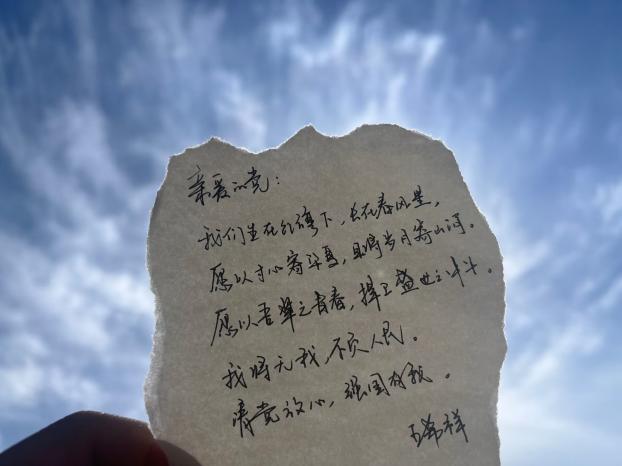 亲爱的党：
我们生在红旗下，长在春风里，
愿以寸心寄华夏，且将岁月寄山河。
愿以吾辈之青春，捍卫盛世之中华。
我将无我，不负人民。
请党放心，强国有我。
王希祥